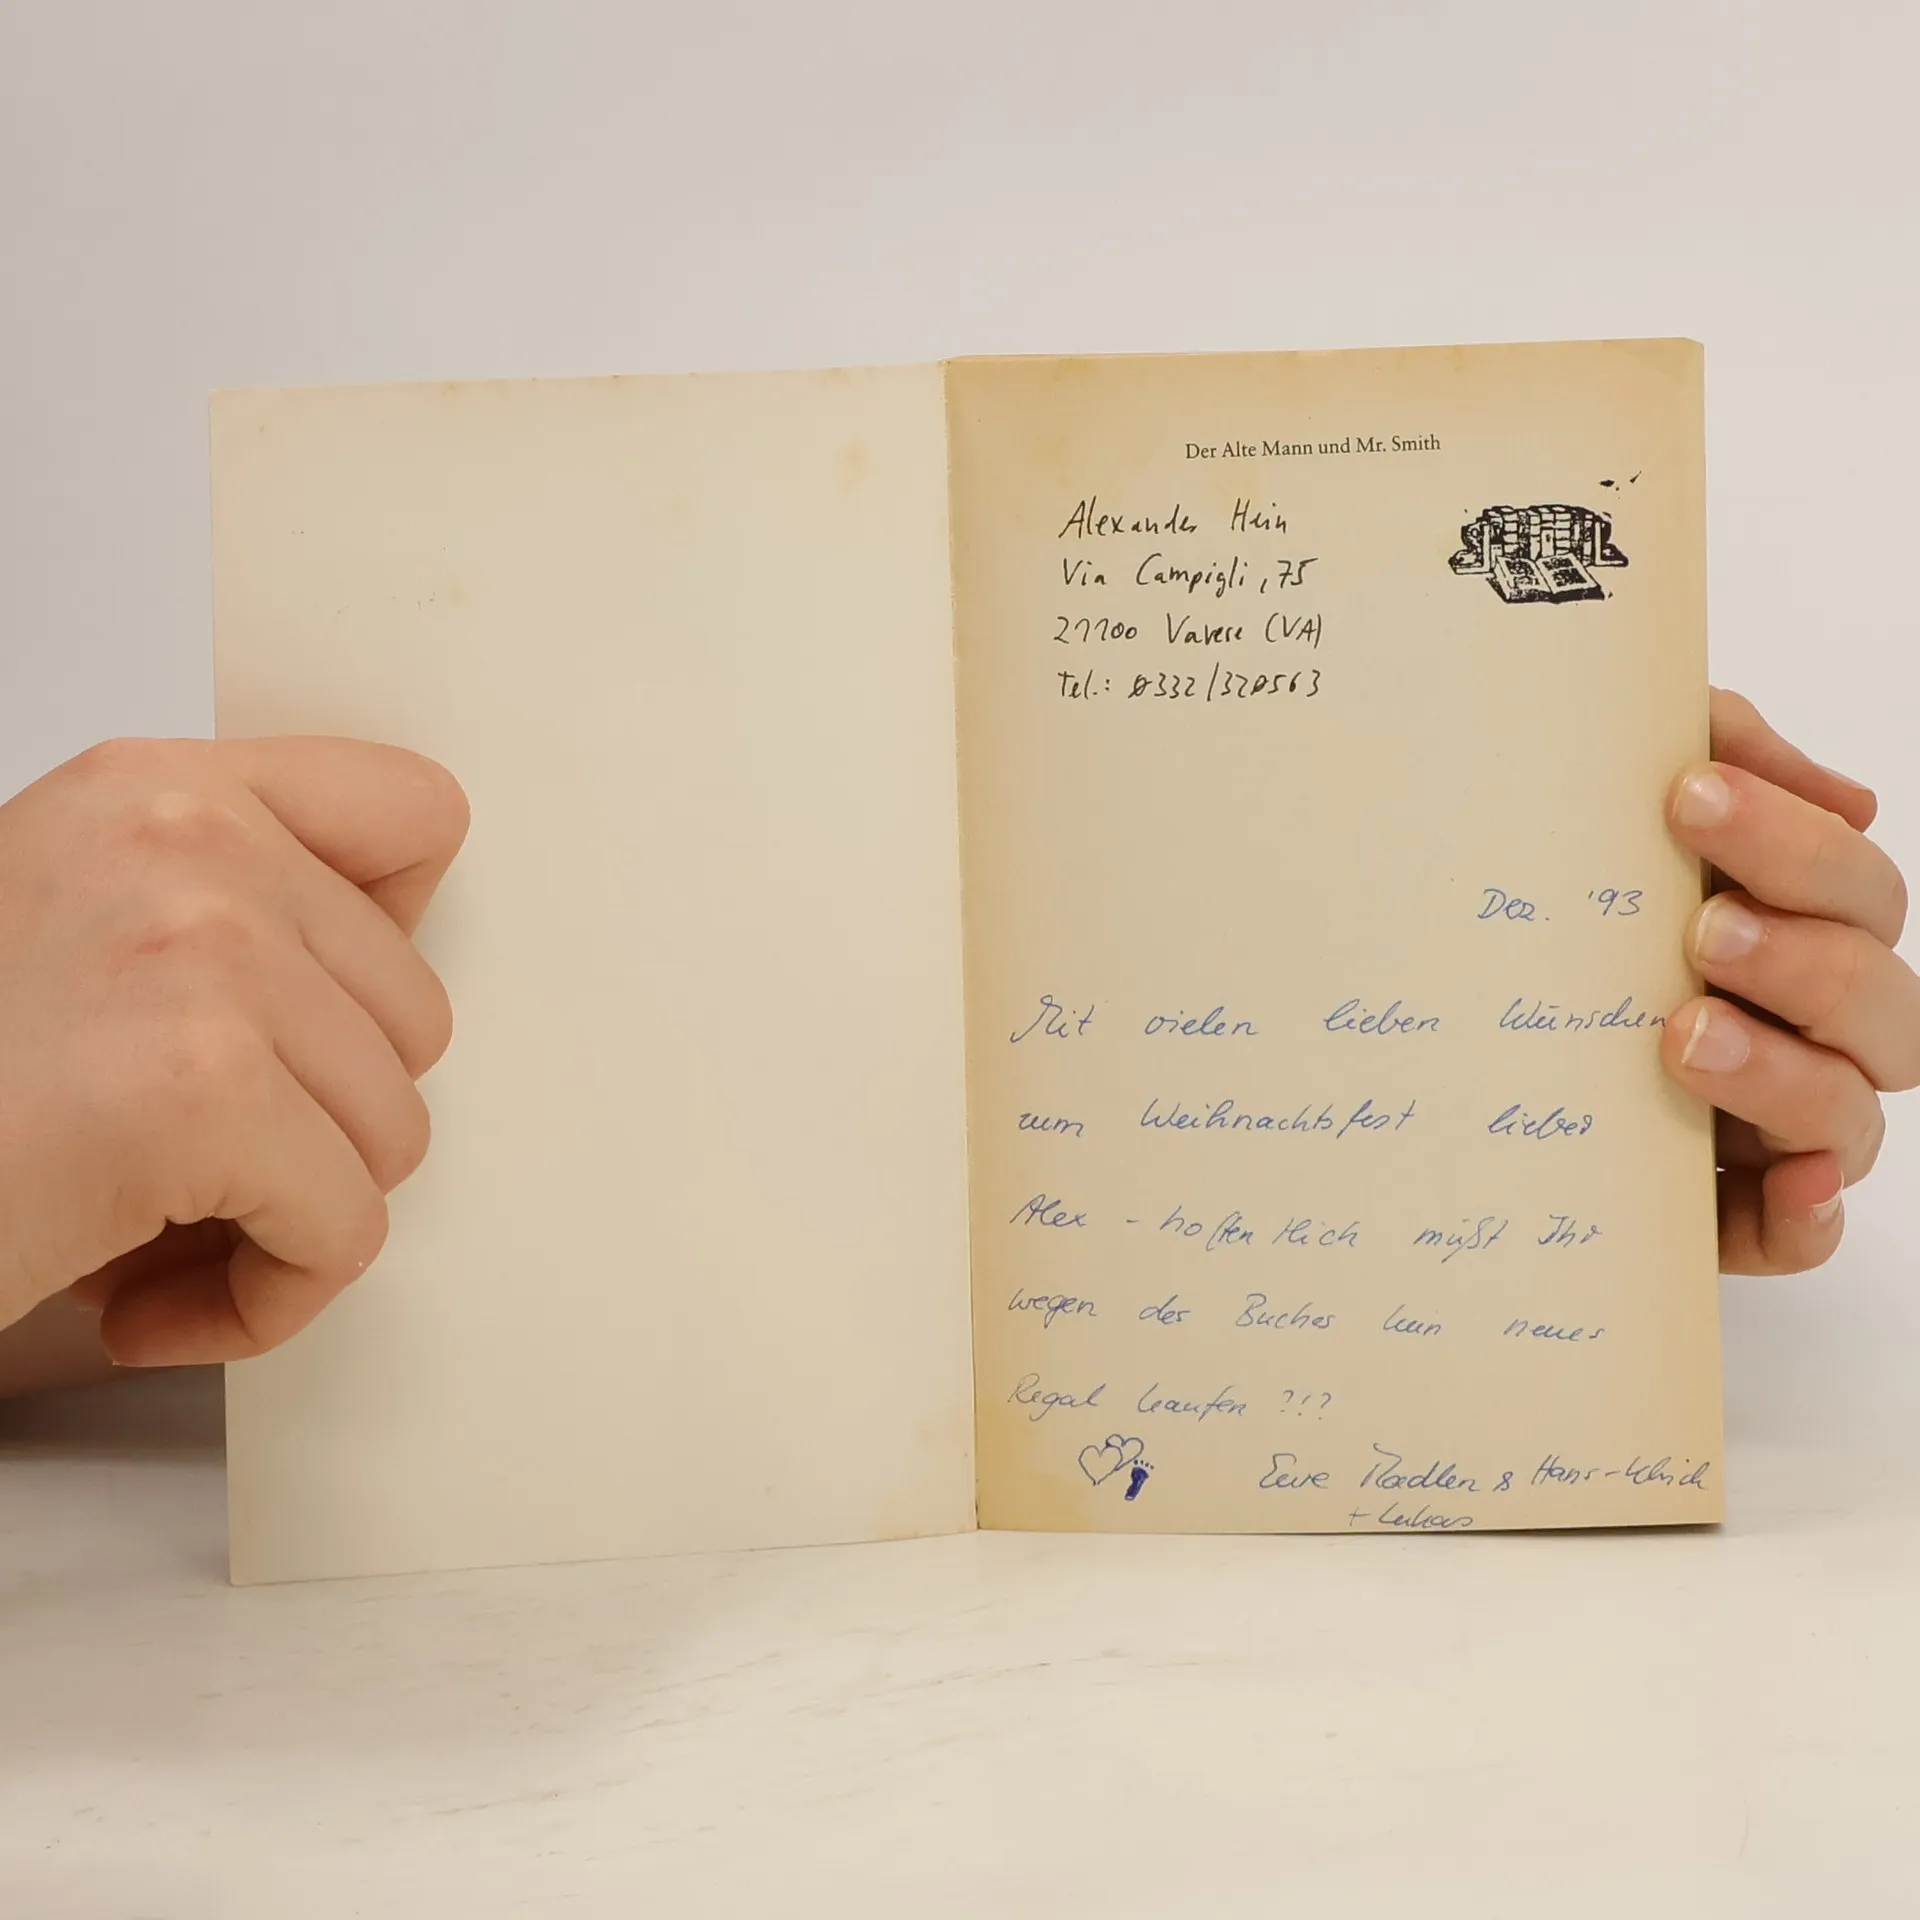 Der Alte Mann und Mr. Smith
Alexander Hein
Via Campigli, 75
21100 Varese (VA)
Tel.: 0332/320563
Dez. '93
Mit vielen lieben Wünschen
zum Weihnachtsfest lieber
Alex - hoffentlich müßt Ihr
wegen des Buches kein neues
Regal kaufen ?!?
Eure Madlen & Hans-Ulrich
+ Lukas